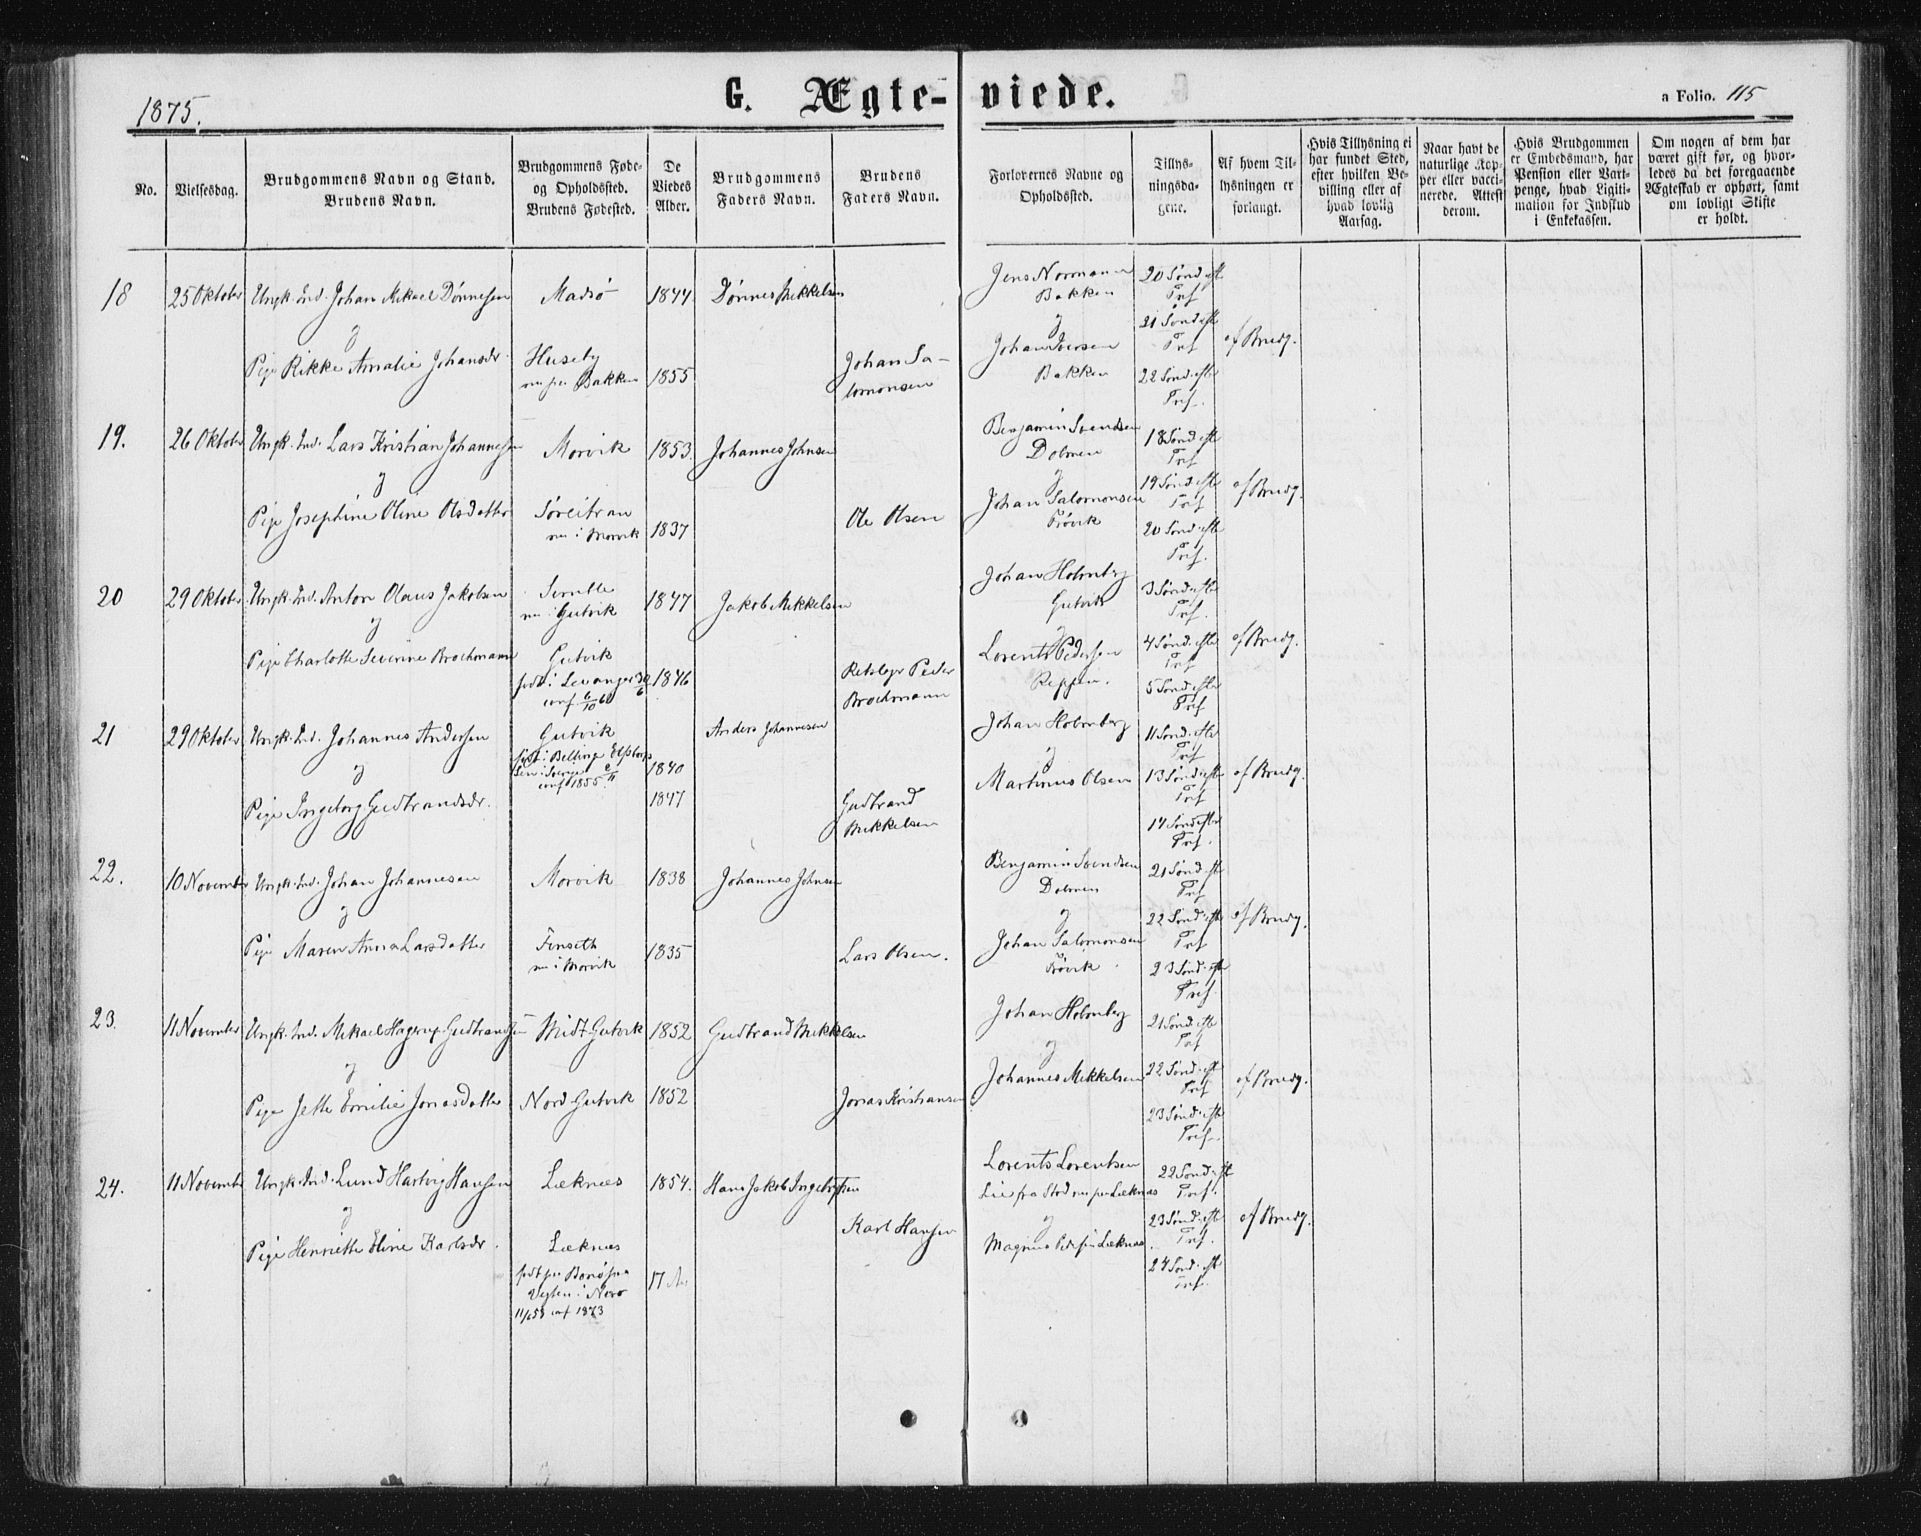 1875.
G. Ægte-viede.
a Folio. 115
No.
Vielsesdag.
Brudgommens Navn og Stand.
Brudens Navn.
Brudgommens Føde-
og Opholdssted.
Brudens Fødested.
De
Viedes
Alder.
Brudgommens
Faders Navn.
Brudens
Faders Navn.
Forlovernes Navne og
Opholdssted.
Tillys-
ningsda-
gene.
Af hvem Til-
lysningen er
forlangt.
Hvis Tillysning ei
har fundet Sted,
efter hvilken Be-
villing eller af
hvad lovlig
Aarsag.
Naar havt de
naturlige Kop-
per eller vacci-
nerede. Attest
derom.
Hvis Brudgommen
er Embedsmand, har
Pension eller Vart-
penge, hvad Ligiti-
mation for Indskud
i Enkekassen.
Om nogen af dem har
været gift før, og hvor-
ledes da det foregaaende
Ægteskab er ophørt, samt
om lovligt Skifte
er holdt.
18
25 Oktober
Ungk. Ind. Johan Mikael Dønnesen
og
Pige Rikke Amalie Johansdr.
Madsø
Huseby
nu paa Bakken
1844
1855
Dønnes Mikkelsen
Johan Sa-
lomonsen
Jens Normann
Bakken
og
Johan Iversen
Bakken
20 Sønd. eft.
Tref
21 Sønd. eft
Tref
22 Sønd. efter
Tref.
af Brudg.
19.
26 Oktober
Ungk. Ind. Lars Kristian Johannessen
og
Pige Josephine Oline Olsdatter
Morvik
nu i Morvik
1853.
1837
Johannes Johnsen
Ole Olsen
Benjamin Svendsen
Dolmen
og
Johan Salomonsen
Frøvik
18 Sønd. efte
Tref
19 Sønd. efte
Tref
20 Sønd. efte
Tref.
af Brudg.
20
29 Oktober
Ungk. Ind. Anton Olaus Jakobsen
og
Pige Charlotte Severine Brochmann
nu i Gutvik
Gutvik
født i Levanger 30/6
conf 6/10 60
1847
1846
Jakob Mikkelsen
Peder
Brochmann
Johan Holmberg
Gutvik
og
Lorents Pedersen
Reppen.
3 Sønd. efter
Tref.
4 Sønd. efter
Tref
5 Sønd. efter
Tref
af Brudg.
21
29 Oktober
Ungk. Ind. Johannes Andersen
og
Pige Ingeborg Gudbrandsdr.
Gutvik
conf 1855.
1840
1847
Anders Johannesen
Gudbrand
Mikkelsen
Johan Holmberg
og
Martinus Olsen
11 Sønd. efter
Tref
13 Sønd. efte
Tref
14 Sønd. efter
Tref.
af Brudg.
22.
10 November
Ungk. Ind. Johan Johannesen
og
Pige Maren Anna Larsdatter
Morvik
Finseth
nu i Morvik
1838
1835
Johannes Johnsen
Lars Olsen.
Benjamin Svendsen
Dolmen
og
Johan Salomonsen
Frøvik
21 Sønd. eft
Tref
22 Sønd. efte
Tref
23 Sønd. efte
Tref.
af Brudg.
23.
11 November
Ungk. Ind. Mikael Hagerup Gudbrandsen
og
Pige Jette Emilie Jonasdatter
Midt Gutvik
Nord Gutvik
1852
1852
Gudbrand Mikkelsen
Jonas Kristiansen
Johan Holmberg
og
Johannes Mikkelsen
21 Sønd. efte
Tref
22 Sønd. efte
Tref
23 Sønd. efte
Tref.
af Brudg.
24.
11 November
Ungk. Ind. Lund Hartvig Hansen
og
Pige Henriette Eline Karlsdr.
Læknes
Læknes
conf 1873
1854.
17 Aar
Hans Jakob Ingebrigtsen
Karl Hansen
Lorents Lorentsen
Lie fra Stod nu paa Læknes
og
Magnus Pedersen Læknes.
22 Sønd. eft
Tref.
23 Sønd. efte
Tref.
24 Sønd. eft
Tref.
af Brudg.